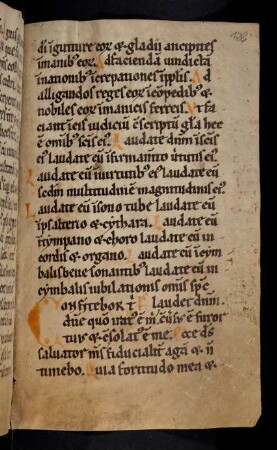 di in gutture eoꝝ & gladii ancipites
in manib; eoꝝ. Ad faciendā uindictā
in nationib; increpationes in pp̄lis. Ad
alligandos reges eoꝝ in cōpedib; &
nobiles eoꝝ in manicis ferreis. Vt fa
ciant in eis iudiciū cōscriptū gl̄a hec
ē omnib; scīs ei᷒. Laudate dn̄m in scīs
ei᷒ laudate eū in firmamto uirtutis ei᷒.
Laudate eū in uirtutib; ei᷒ laudate eū
scdm multitudinē magnitudinis ei᷒.
Laudate eū in sono tube laudate eū in
psalterio & cythara. Laudate eū
in tympano & choro laudate eū in
cordis & organo. Laudate eū in cym
balis bene sonantib; laudate eū in
cymbalis iubilationis omīs sp̄c
Confitebor t̄ laudet dn̄m.
dn̄e quō irat᷒ ē m̄ cūsus ē furor
tuus & cōsolat᷒ ē me. Ecce ds̄
saluator m̄s fiducialit̄ agā & n̄
timebo. Quia fortitudo mea &